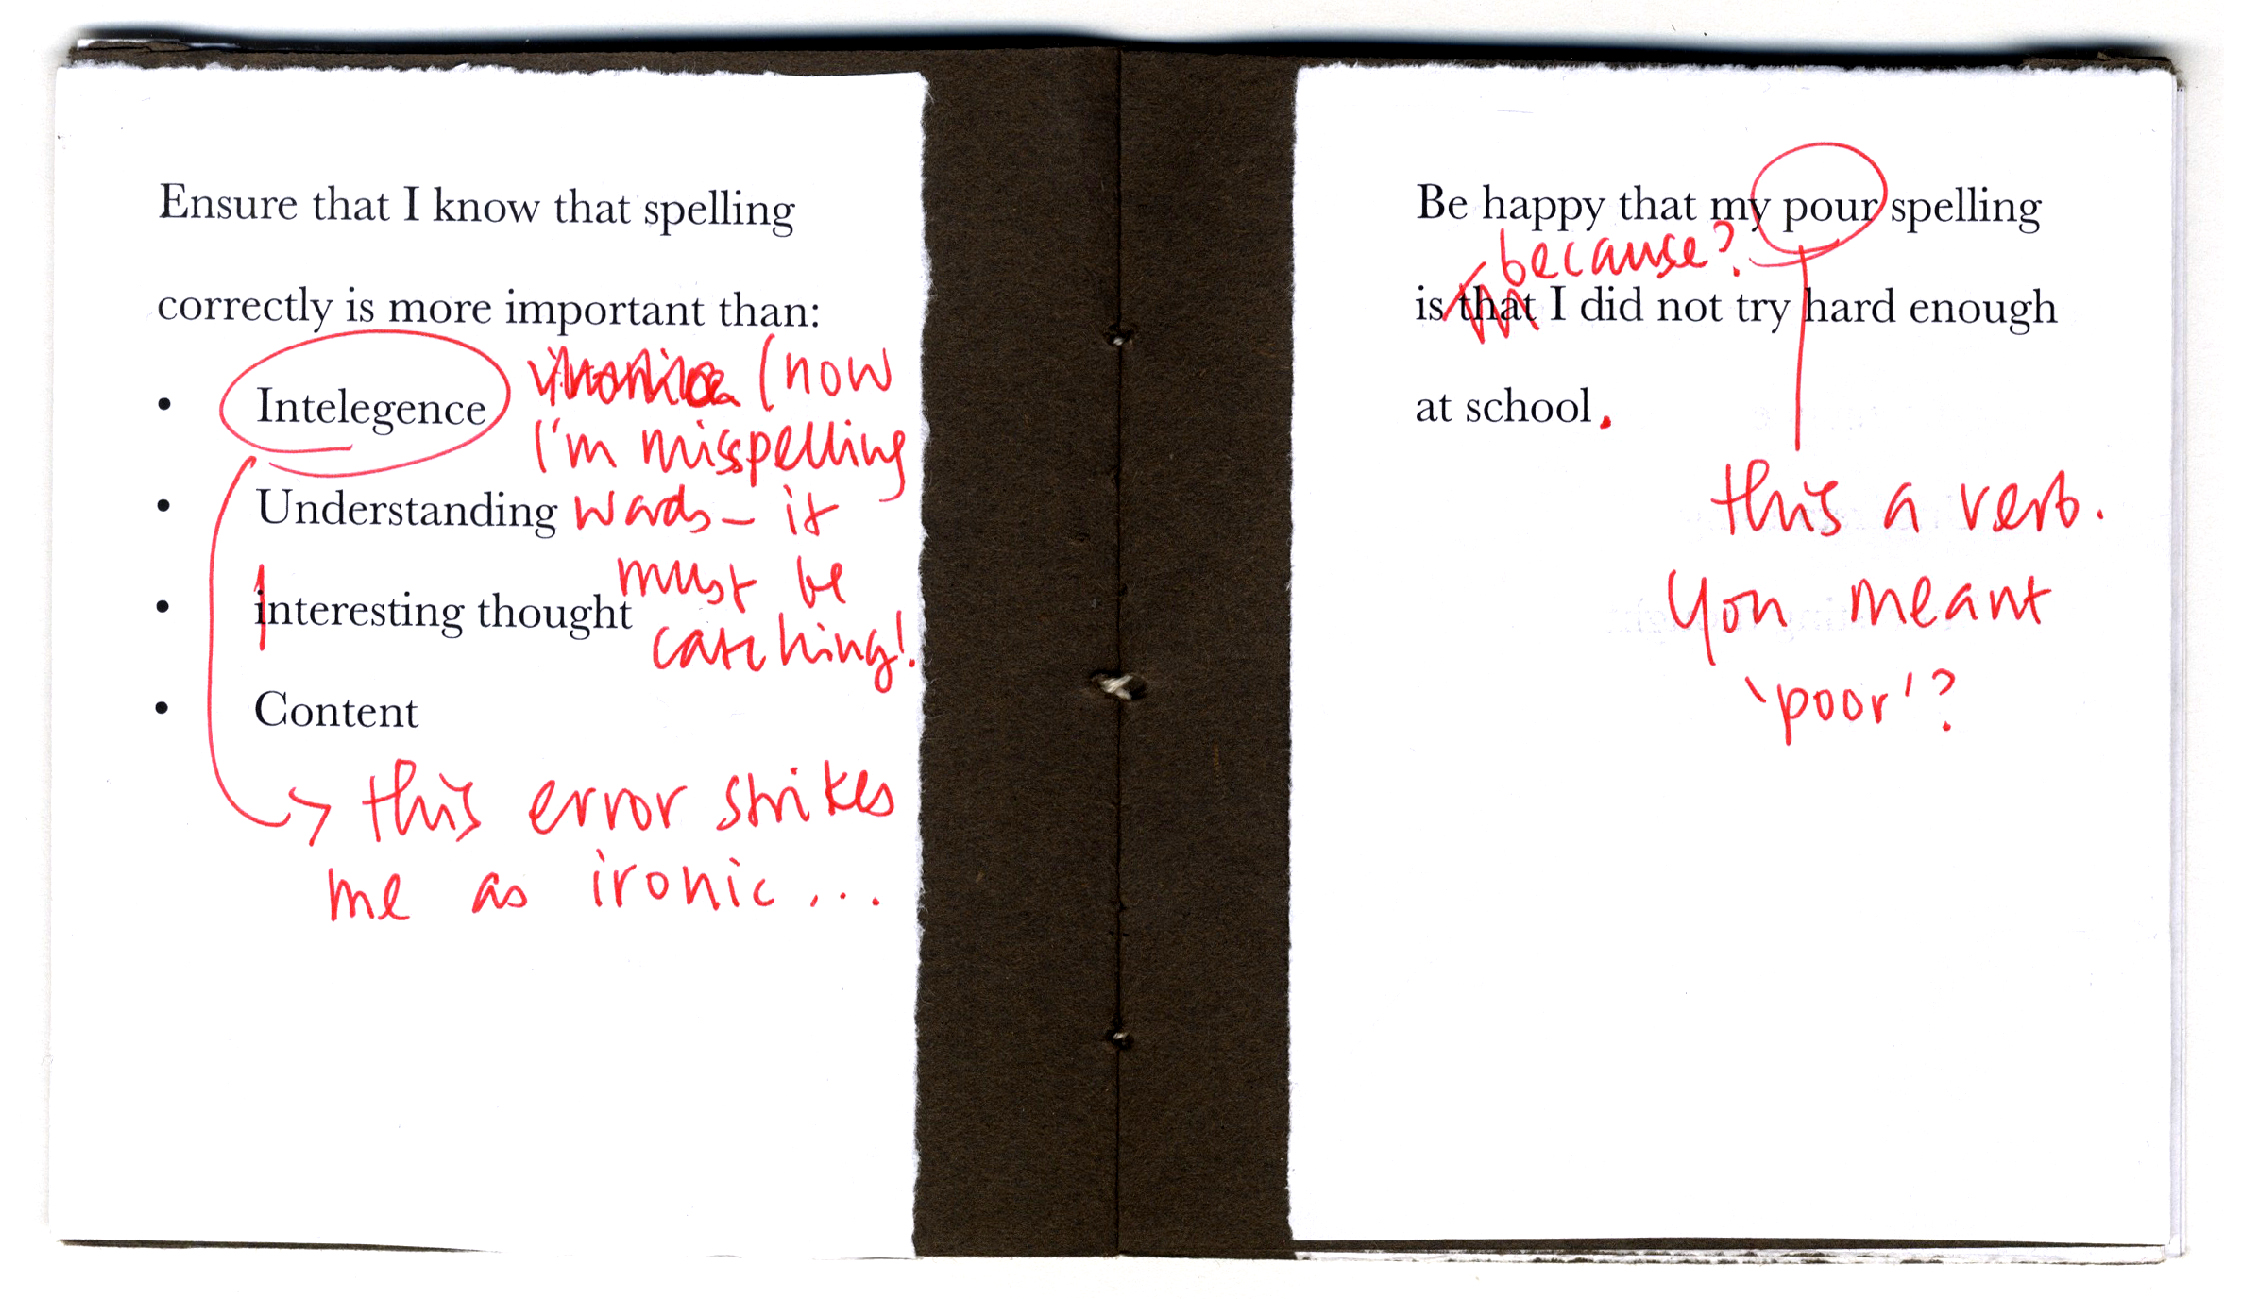 Ensure that I know that spelling
correctly is more important than:
• Intelegence
(now
I'm misspelling
• Understanding
words – it
• interesting thought
must be
catching!
• Content
this error strikes
me as ironic...
Be happy that my pour spelling
because?
is that I did not try hard enough
at school.
this a verb.
You meant
'poor'?